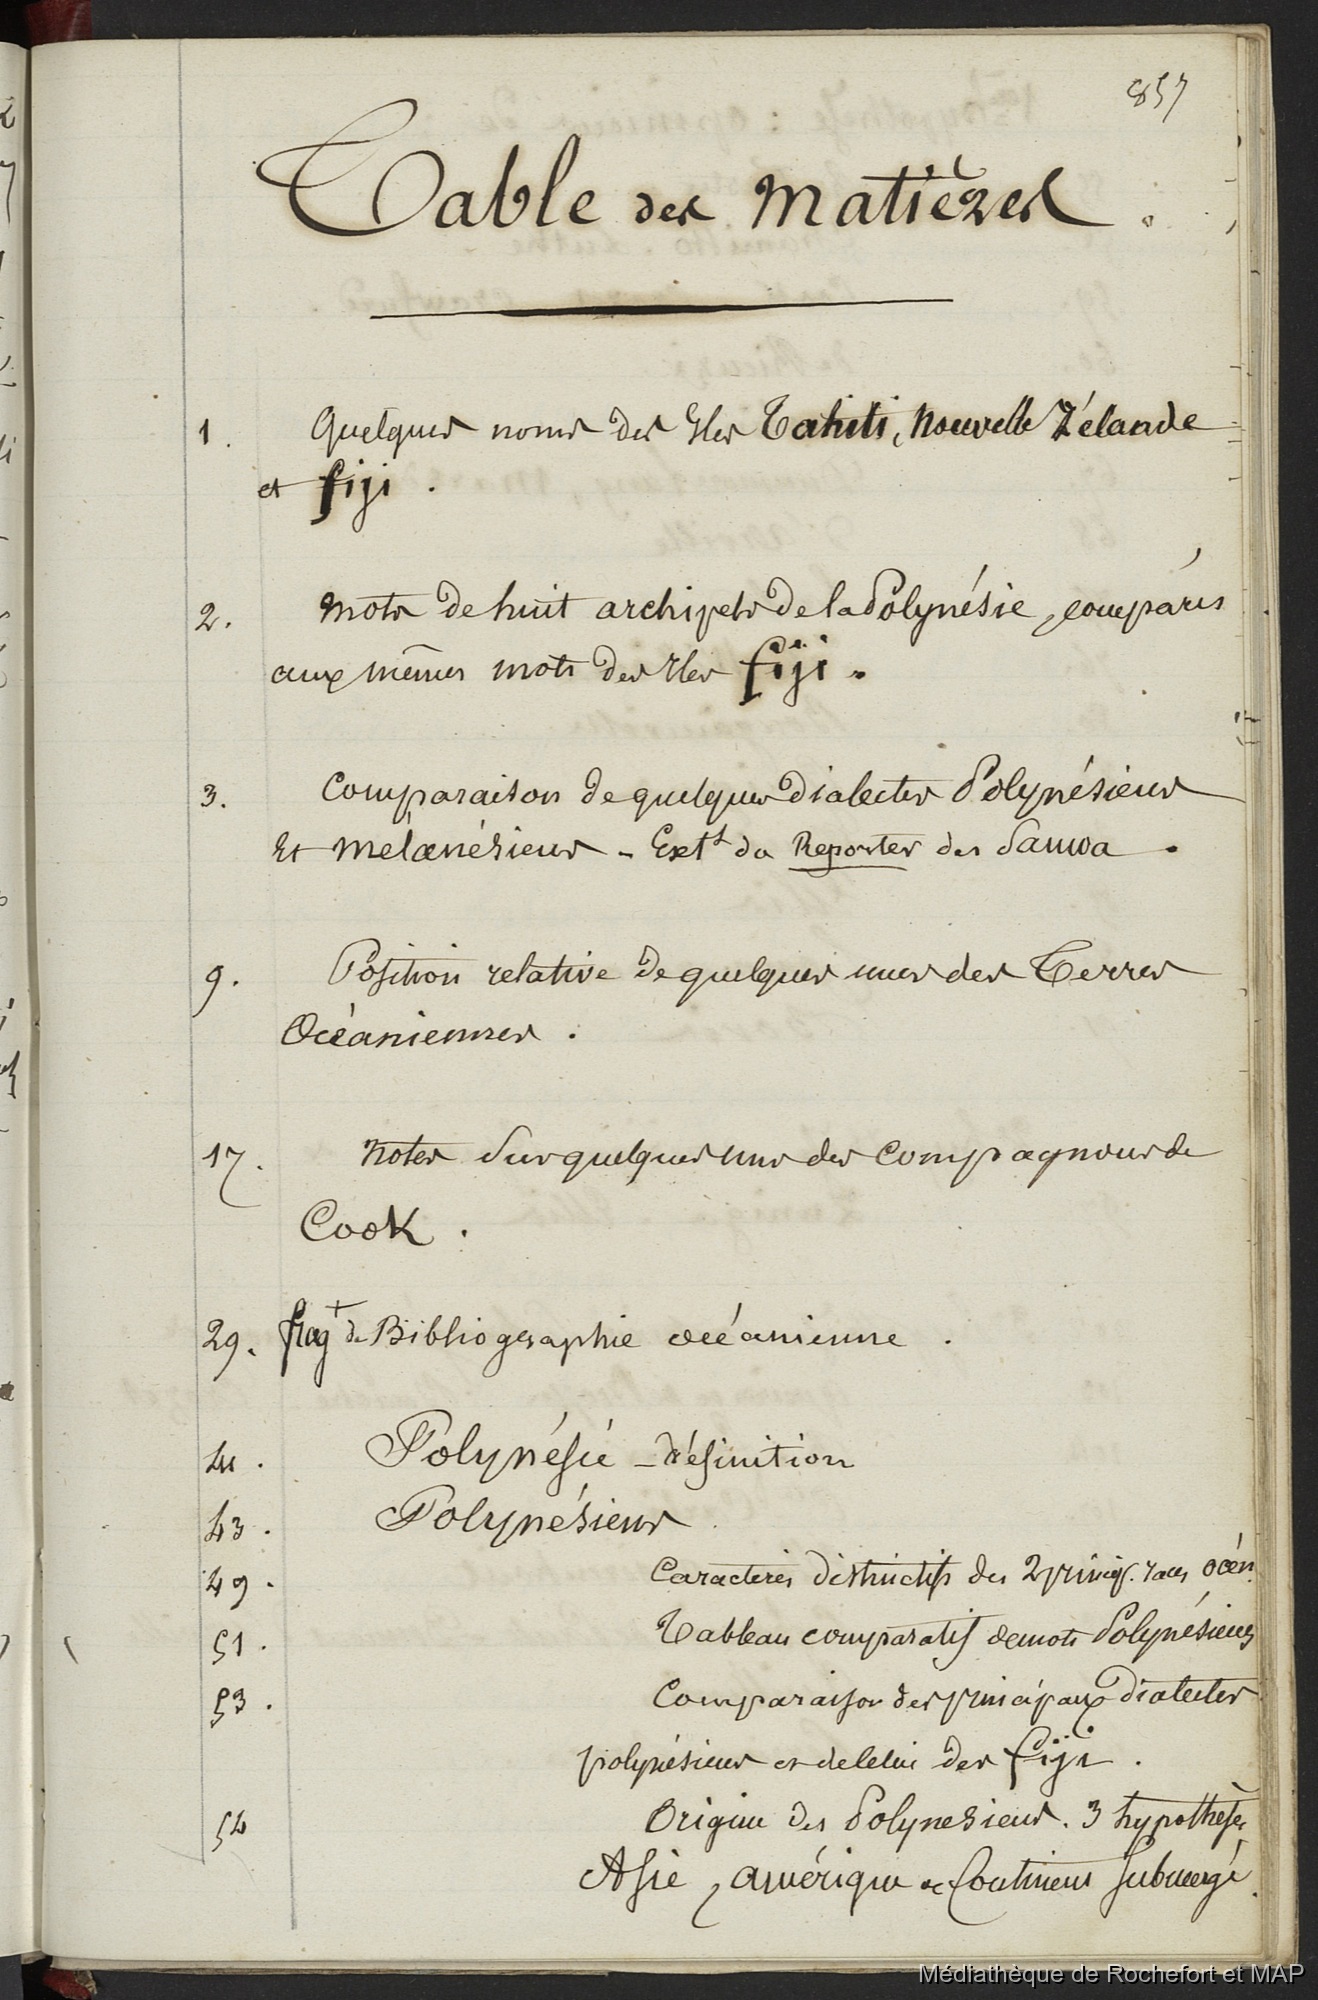 857
Table des matières.
1. Quelques noms des Iles Tahiti, Nouvelle Zélande
et fiji.
2. Mots de huit archipels de la Polynésie, comparés
aux mêmes mots des Iles fiji.
3. Comparaison de quelques dialectes Polynésiens
Et mélanésiens - Extt du Reporter des Samoa.
9. Position relative de quelques unes des Terres
Océaniennes.
17. Notes sur quelques uns des compagnons de
Cook.
29. fragt de Bibliographie océanienne.
41. Polynésie - définition
43. Polynésiens
49. Caractères distinctifs des 2 princip. races océn.
51. Tableau comparatif de mots Polynésiens
53. Comparaison des principaux dialectes
polynésiens et de celui des fiji.
54 Origine des Polynésiens. 3 hypothèses,
Asie, amérique et Continent submergé.
Médiathèque de Rochefort et MAP